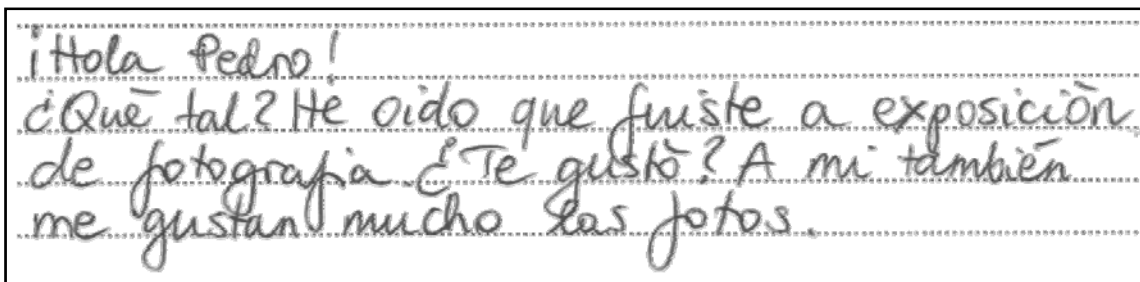 ¡Hola Pedro!
¿Qué tal? Hé oido que fuiste a exposición
de fotografia. ¿Te gustó? A mi también
me gustan mucho las fotos.